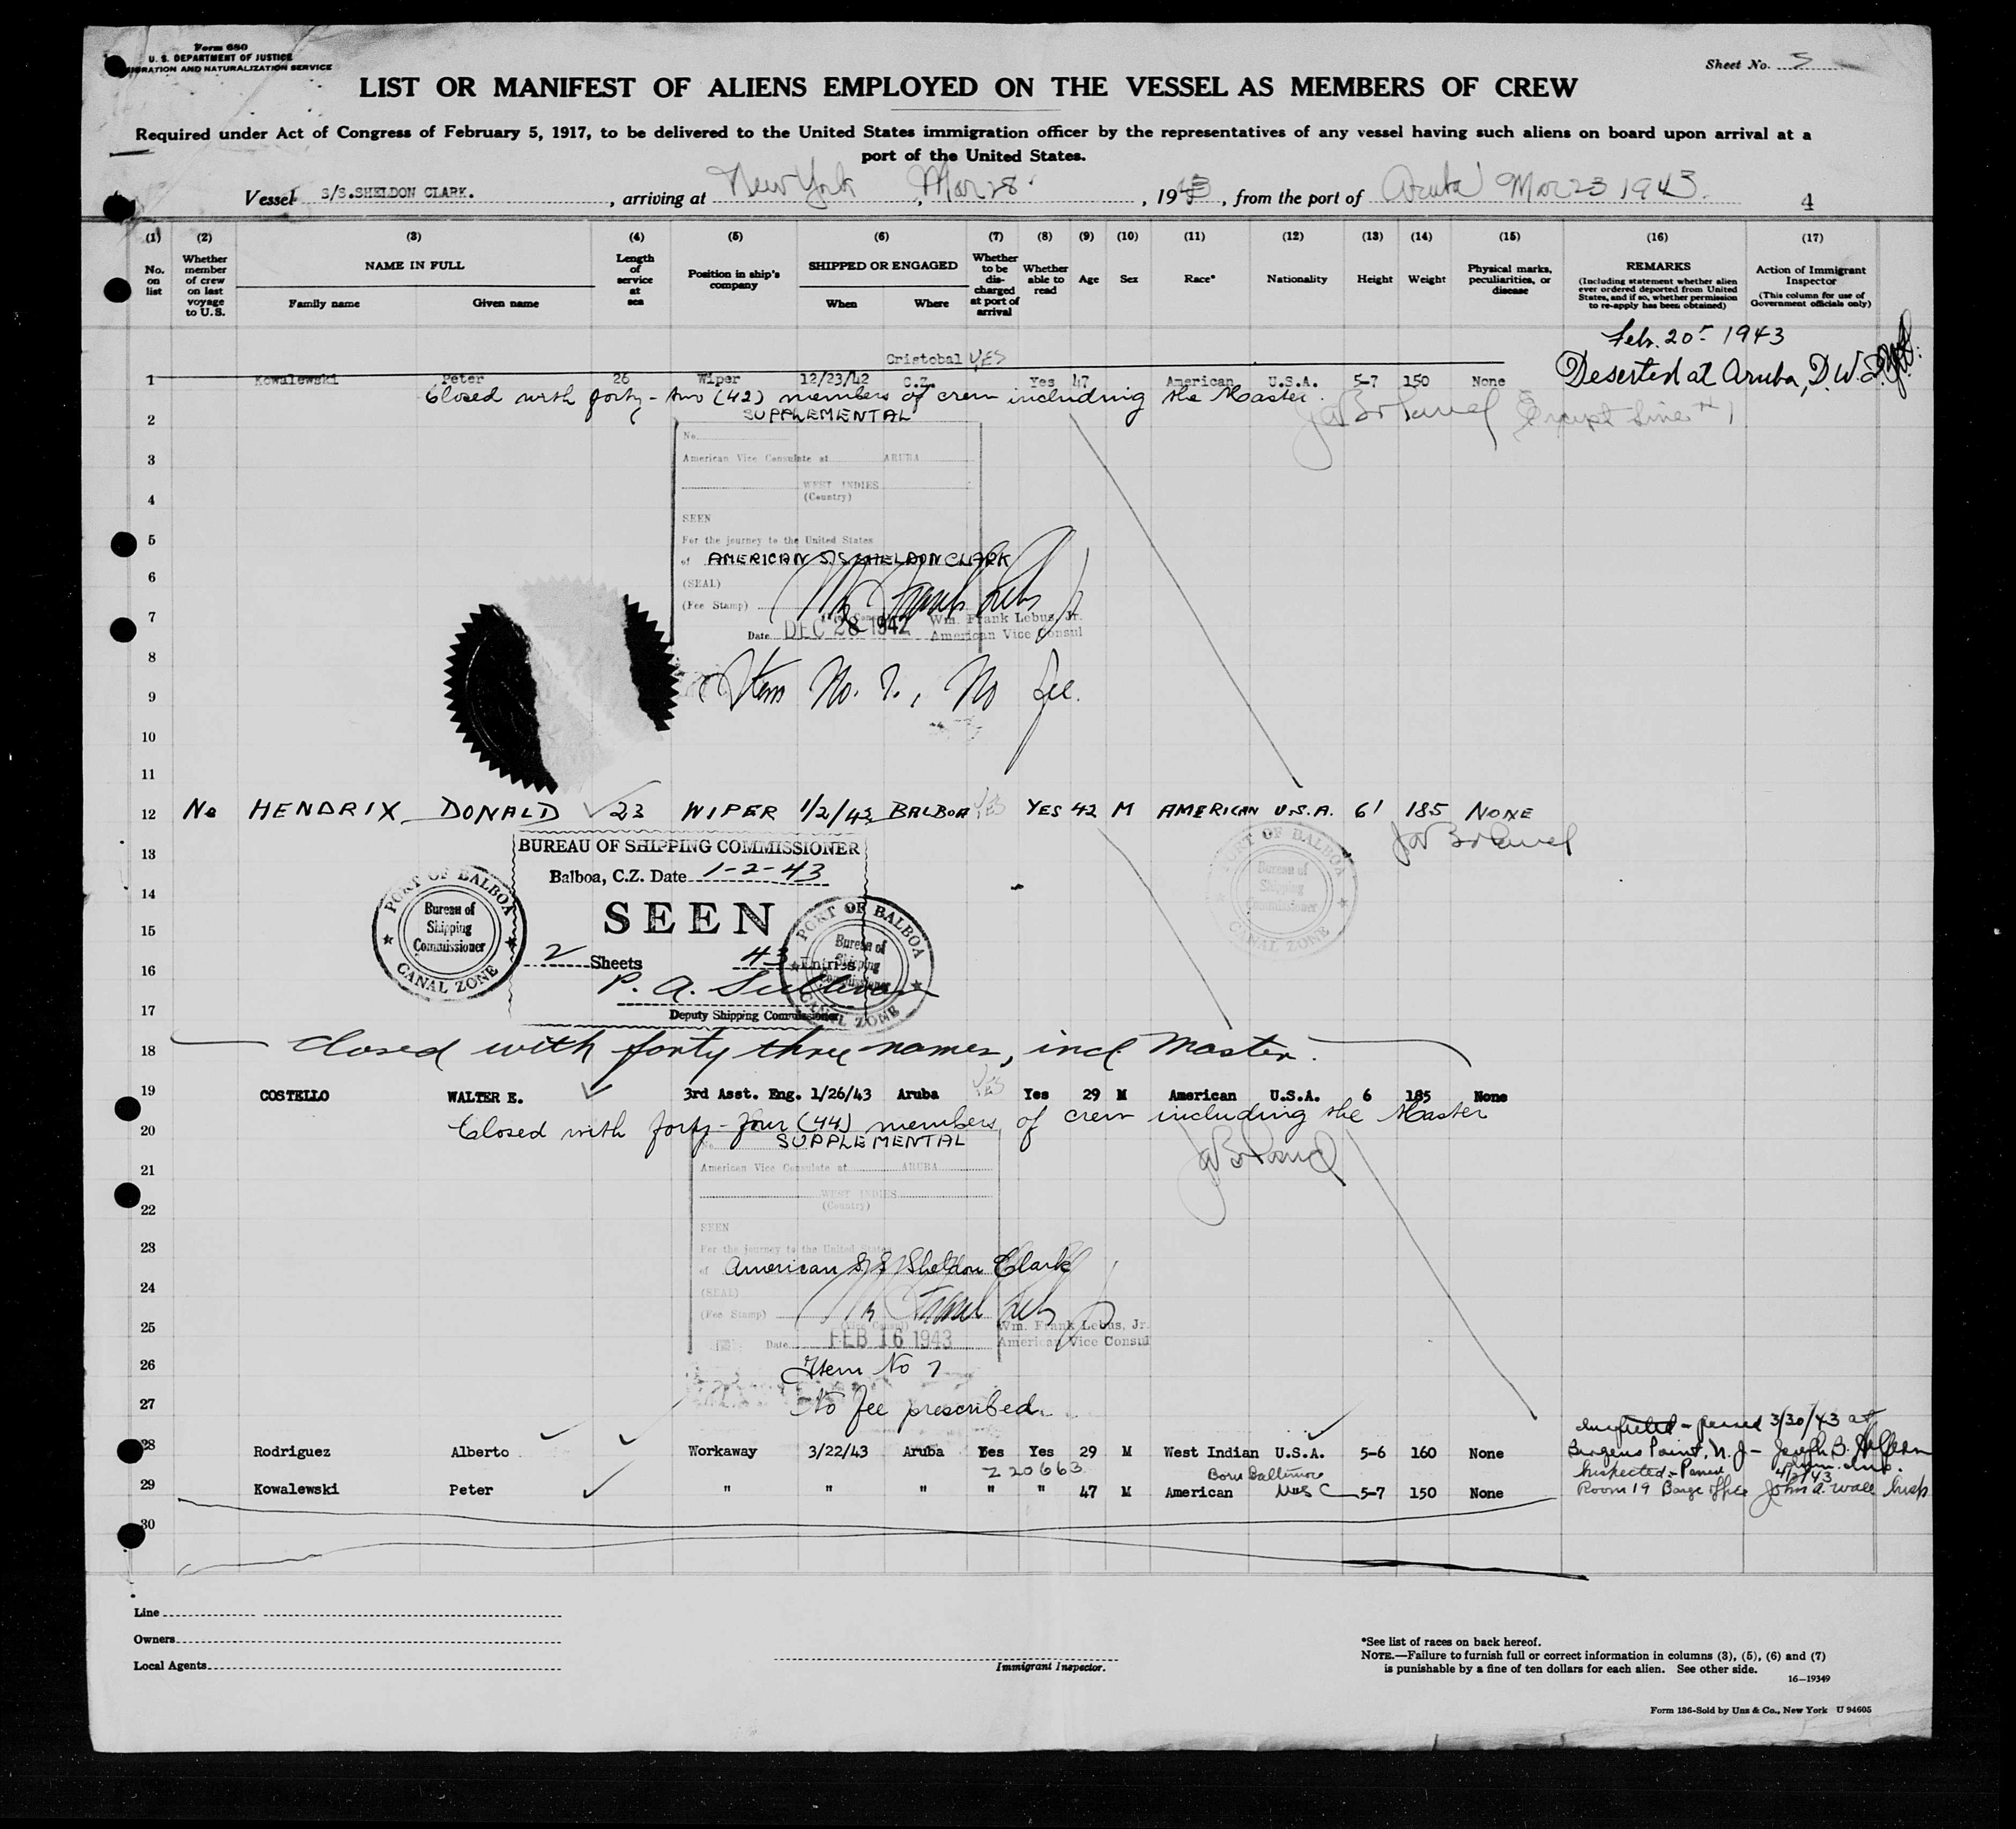 Form 680
U. S. DEPARTMENT OF JUSTICE
IMMIGRATION AND NATURALIZATION SERVICE
Sheet No. 5
LIST OR MANIFEST OF ALIENS EMPLOYED ON THE VESSEL AS MEMBERS OF CREW
Required under Act of Congress of February 5, 1917, to be delivered to the United States immigration officer by the representatives of any vessel having such aliens on board upon arrival at a
port of the United States.
Vessel S/S.SHELDON CLARK. , arriving at New York , Mar 28 , 1943 , from the port of Aruba Mar 23 1943.
4
(1) (2) (3) (4) (5) (6) (7) (8) (9) (10) (11) (12) (13) (14) (15) (16) (17)
No. on list
Whether member of crew on last voyage to U.S.
NAME IN FULL
Family name Given name
Length of service at sea
Position in ship's company
SHIPPED OR ENGAGED
When Where
Whether to be discharged at port of arrival
Whether able to read
Age
Sex
Race*
Nationality
Height
Weight
Physical marks, peculiarities, or disease
REMARKS
(Including statement whether alien ever ordered deported from United States, and if so, whether permission to re-apply has been obtained)
Action of Immigrant Inspector
(This column for use of Government officials only)
Feb. 20 1943
Cristobal YES
1 Kowalewski Peter 26 Wiper 12/23/42 C.Z. Yes 47 American U.S.A. 5-7 150 None Deserted at Aruba, D.W.I.
Closed with forty-two (42) members of crew including the Master.
2 SUPPLEMENTAL Except Line # 1
No.
3 American Vice Consulate at ARUBA
4 WEST INDIES
(Country)
SEEN
5 For the journey to the United States
of AMERICAN S/S SHELDON CLARK
6 (SEAL)
(Fee Stamp)
7 Wm. Frank Lebus, Jr.
Date DEC 28 1942 American Vice Consul
8
9 Item No. 7, No fee.
10
11
12 No HENDRIX DONALD 23 WIPER 1/2/43 BALBOA YES YES 42 M AMERICAN U.S.A. 6' 185 NONE
13 BUREAU OF SHIPPING COMMISSIONER
Balboa, C.Z. Date 1-2-43
14 SEEN
15 2 Sheets 43 Entries
16 P. A. Sullivan
17 Deputy Shipping Commissioner
PORT OF BALBOA
Bureau of Shipping Commissioner
CANAL ZONE
PORT OF BALBOA
Bureau of Shipping Commissioner
CANAL ZONE
PORT OF BALBOA
Bureau of Shipping Commissioner
CANAL ZONE
18 Closed with forty three names, incl. Master.
19 COSTELLO WALTER E. 3rd Asst. Eng. 1/26/43 Aruba YES Yes 29 M American U.S.A. 6 185 None
Closed with forty-four (44) members of crew including the Master
20 SUPPLEMENTAL
No.
21 American Vice Consulate at ARUBA
WEST INDIES
22 (Country)
SEEN
23 For the journey to the United States
of American S/S Sheldon Clark
24 (SEAL)
(Fee Stamp)
25 (Vice Consul) Wm. Frank Lebus, Jr.
Date FEB 16 1943 American Vice Consul
26 Item No 7
27 No fee prescribed.
passed 3/30/43 at
28 Rodriguez Alberto Workaway 3/22/43 Aruba Yes Yes 29 M West Indian U.S.A. 5-6 160 None Bergens Point, N.J- Joseph B.
Z 20663 Born Baltimore Inspected - Passed 4/3/43
29 Kowalewski Peter " " " " " 47 M American 5-7 150 None Room 19 Barge Office John A. Wall Insp
30
Line
Owners
Local Agents
Immigrant Inspector.
*See list of races on back hereof.
NOTE.—Failure to furnish full or correct information in columns (3), (5), (6) and (7)
is punishable by a fine of ten dollars for each alien. See other side.
16—19349
Form 136-Sold by Unz & Co., New York U 94605